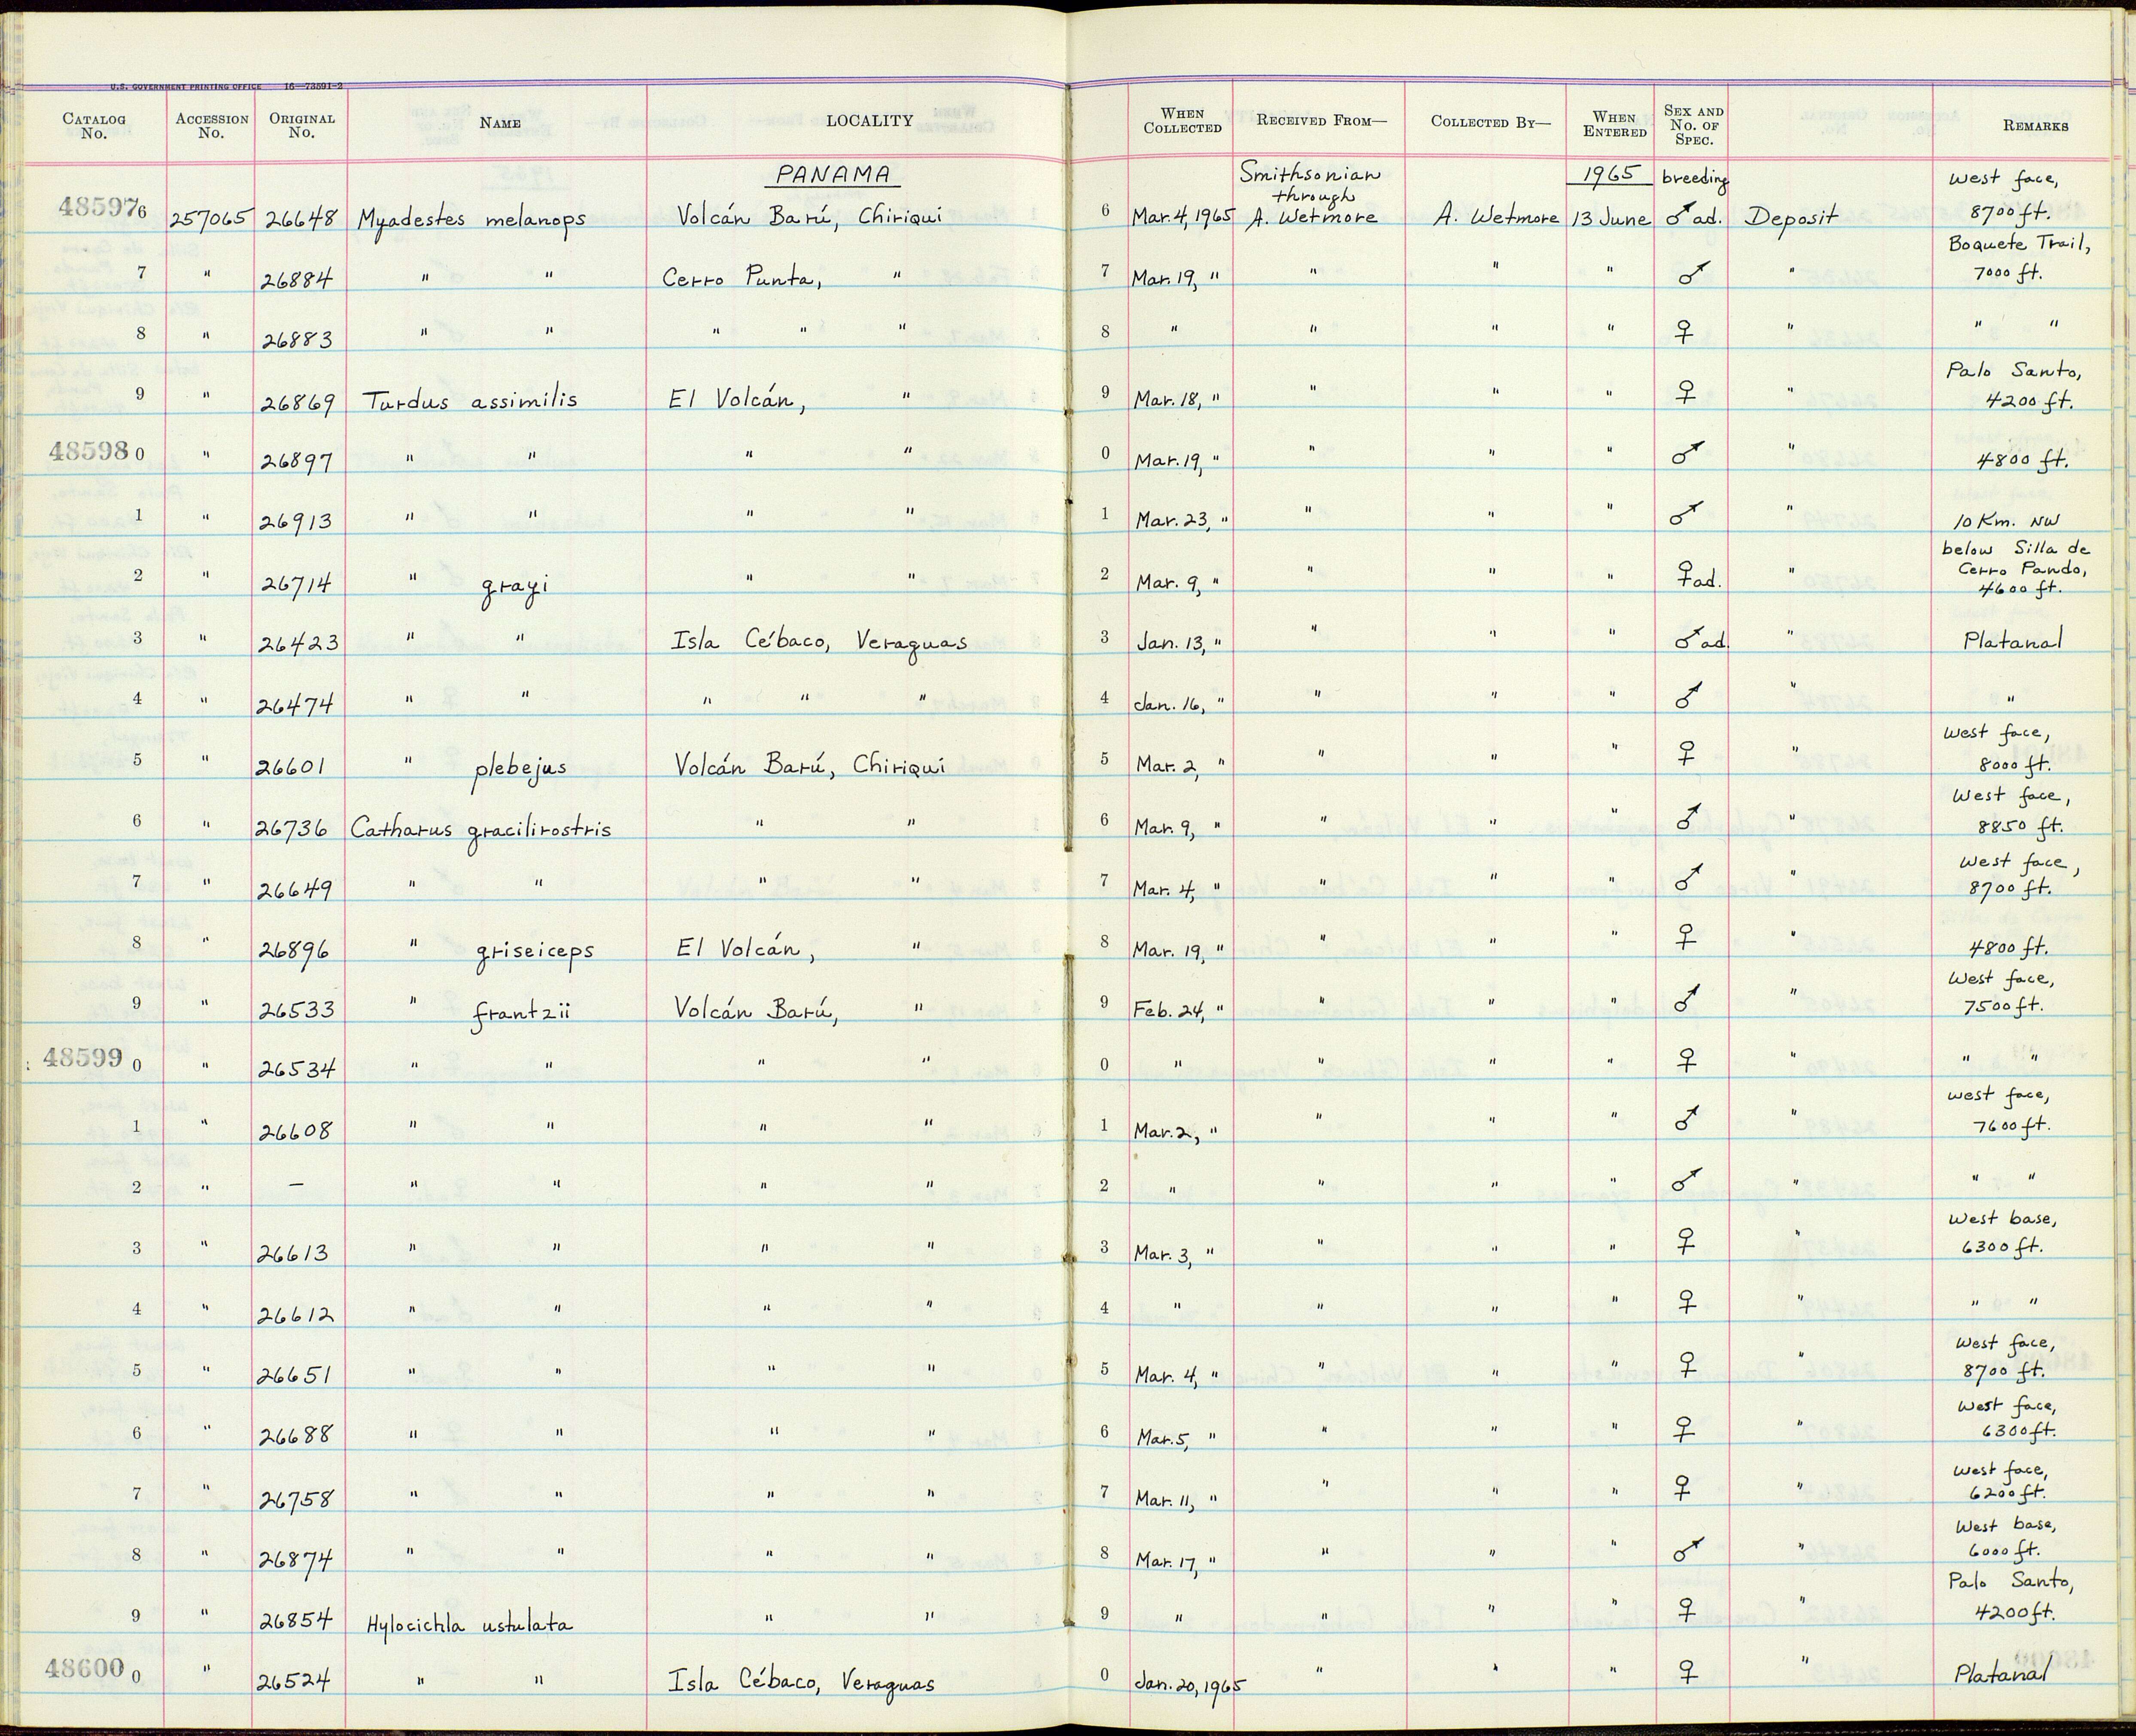 U.S. GOVERNMENT PRINTING OFFICE 16—73591-2
CATALOG No. ACCESSION No. ORIGINAL No. NAME LOCALITY WHEN COLLECTED RECEIVED FROM— COLLECTED BY— WHEN ENTERED SEX AND No. OF SPEC. REMARKS
PANAMA Smithsonian through 1965 breeding West face,
485976 257065 26648 Myadestes melanops Volcán Barú, Chiriquí 6 Mar. 4, 1965 A. Wetmore A. Wetmore 13 June ♂ ad. Deposit 8700 ft.
Boquete Trail,
7 " 26884 " " Cerro Punta, " 7 Mar. 19, " " " " ♂ " 7000 ft.
8 " 26883 " " " " " 8 " " " " ♀ " " "
Palo Santo,
9 " 26869 Turdus assimilis El Volcán, " 9 Mar. 18, " " " " ♀ " 4200 ft.
48598 0 " 26897 " " " " 0 Mar. 19, " " " " ♂ " 4800 ft.
1 " 26913 " " " " 1 Mar. 23, " " " " ♂ " 10 Km. NW
below Silla de
Cerro Pando,
2 " 26714 " grayi " " 2 Mar. 9, " " " " ♀ ad. " 4600 ft.
3 " 26423 " " Isla Cébaco, Veraguas 3 Jan. 13, " " " " ♂ ad. " Platanal
4 " 26474 " " " " " 4 Jan. 16, " " " " ♂ " "
West face,
5 " 26601 " plebejus Volcán Barú, Chiriquí 5 Mar. 2, " " " " ♀ " 8000 ft.
West face,
6 " 26736 Catharus gracilirostris " " 6 Mar. 9, " " " " ♂ " 8850 ft.
West face,
7 " 26649 " " " " 7 Mar. 4, " " " " ♂ " 8700 ft.
8 " 26896 " griseiceps El Volcán, " 8 Mar. 19, " " " " ♀ " 4800 ft.
West face,
9 " 26533 " frantzii Volcán Barú, " 9 Feb. 24, " " " " ♂ " 7500 ft.
48599 0 " 26534 " " " " 0 " " " " ♀ " " "
West face,
1 " 26608 " " " " 1 Mar. 2, " " " " ♂ " 7600 ft.
2 " — " " " " 2 " " " " ♂ " " "
West base,
3 " 26613 " " " " 3 Mar. 3, " " " " ♀ " 6300 ft.
4 " 26612 " " " " 4 " " " " ♀ " " "
West face,
5 " 26651 " " " " 5 Mar. 4, " " " " ♀ " 8700 ft.
West face,
6 " 26688 " " " " 6 Mar. 5, " " " " ♀ " 6300 ft.
West face,
7 " 26758 " " " " 7 Mar. 11, " " " " ♀ " 6200 ft.
West base,
8 " 26874 " " " " 8 Mar. 17, " " " " ♂ " 6000 ft.
Palo Santo,
9 " 26854 Hylocichla ustulata " " 9 " " " " ♀ " 4200 ft.
48600 0 " 26524 " " Isla Cébaco, Veraguas 0 Jan. 20, 1965 " " " ♀ " Platanal